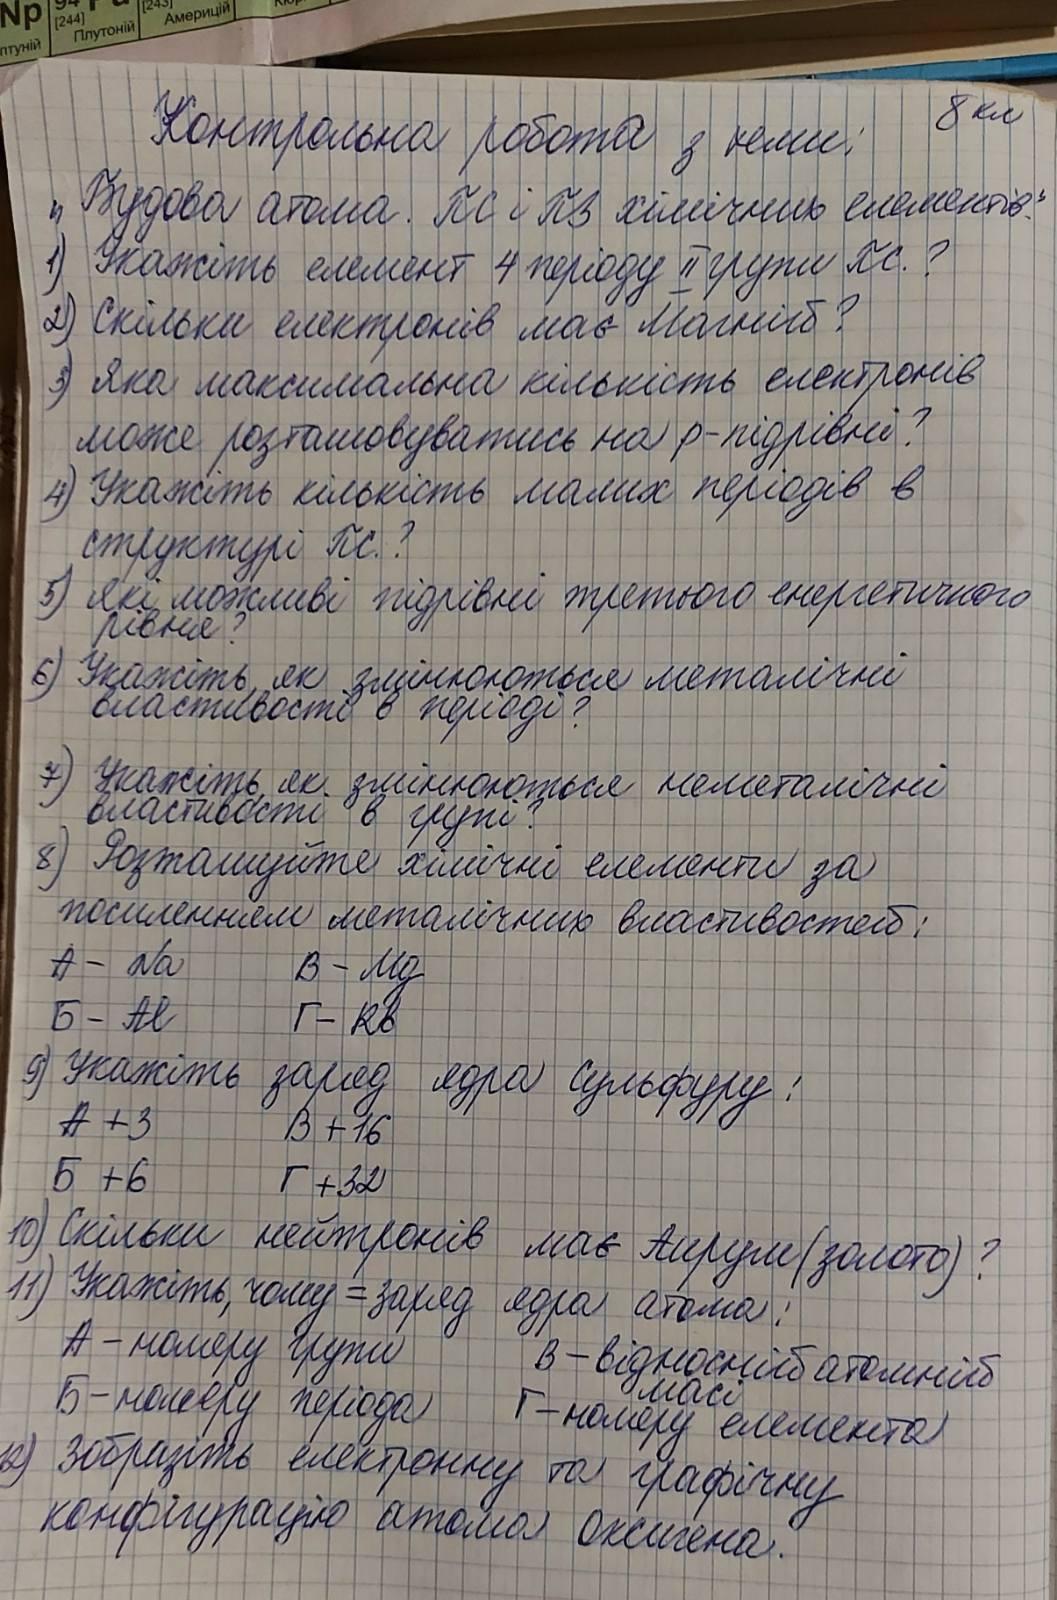 Np
94 Pu
[243]
Кюрі
птуній
[244]
Плутоній
Америцій
8 кл
Контрольна робота з теми:
„Будова атома. ПС і ПЗ хімічних елементів."
1) Укажіть елемент 4 періоду II групи ПС.?
2) Скільки електронів має Магній?
3) Яка максимальна кількість електронів
може розташовуватись на p-підрівні?
4) Укажіть кількість малих періодів в
структурі ПС.?
5) Які можливі підрівні третього енергетичного
рівня?
6) Укажіть, як змінюються металічні
властивості в періоді?
7) Укажіть, як змінюються неметалічні
властивості в групі?
8) Розташуйте хімічні елементи за
посиленням металічних властивостей:
А - Na В - Mg
Б - Al Г - Rb
9) Укажіть заряд ядра Сульфуру:
А +3 В +16
Б +6 Г +32
10) Скільки нейтронів має Аурум (золото)?
11) Укажіть, чому = заряд ядра атома:
А - номеру групи В - відносній атомній
масі
Б - номеру періода Г - номеру елемента
12) Зобразіть електронну та графічну
конфігурацію атома Оксигена.